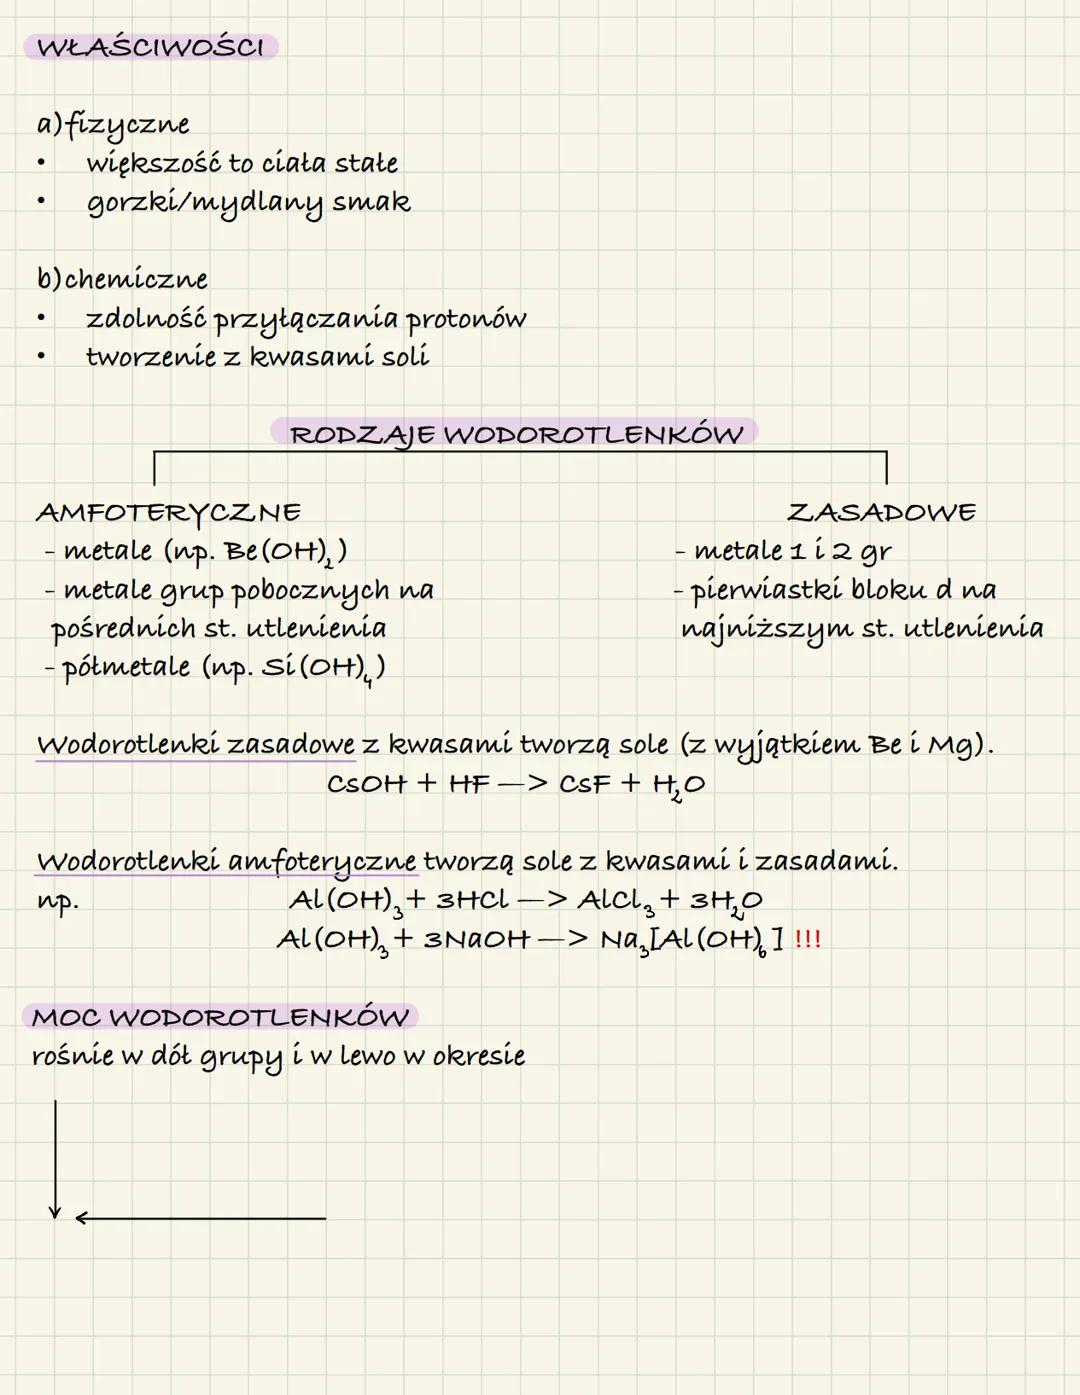 WŁAŚCIWOŚCI
a) fizyczne
• większość to ciała stałe
• gorzki/mydlany smak
b) chemiczne
• zdolność przyłączania protonów
• tworzenie z kwasami soli
RODZAJE WODOROTLENKÓW
AMFOTERYCZNE
- metale (np. Be(OH)₂)
- metale grup pobocznych na
pośrednich st. utlenienia
- półmetale (np. Si(OH)₄)
ZASADOWE
- metale 1 i 2 gr
- pierwiastki bloku d na
najniższym st. utlenienia
Wodorotlenki zasadowe z kwasami tworzą sole (z wyjątkiem Be i Mg).
CsOH + HF —> CsF + H₂O
Wodorotlenki amfoteryczne tworzą sole z kwasami i zasadami.
np. Al(OH)₃ + 3HCl —> AlCl₃ + 3H₂O
Al(OH)₃ + 3NaOH —> Na₃[Al(OH)₆] !!!
MOC WODOROTLENKÓW
rośnie w dół grupy i w lewo w okresie